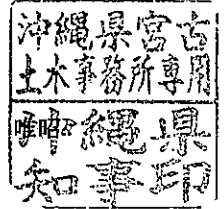 沖縄県宮古
土木事務所専用
沖縄県
知事印